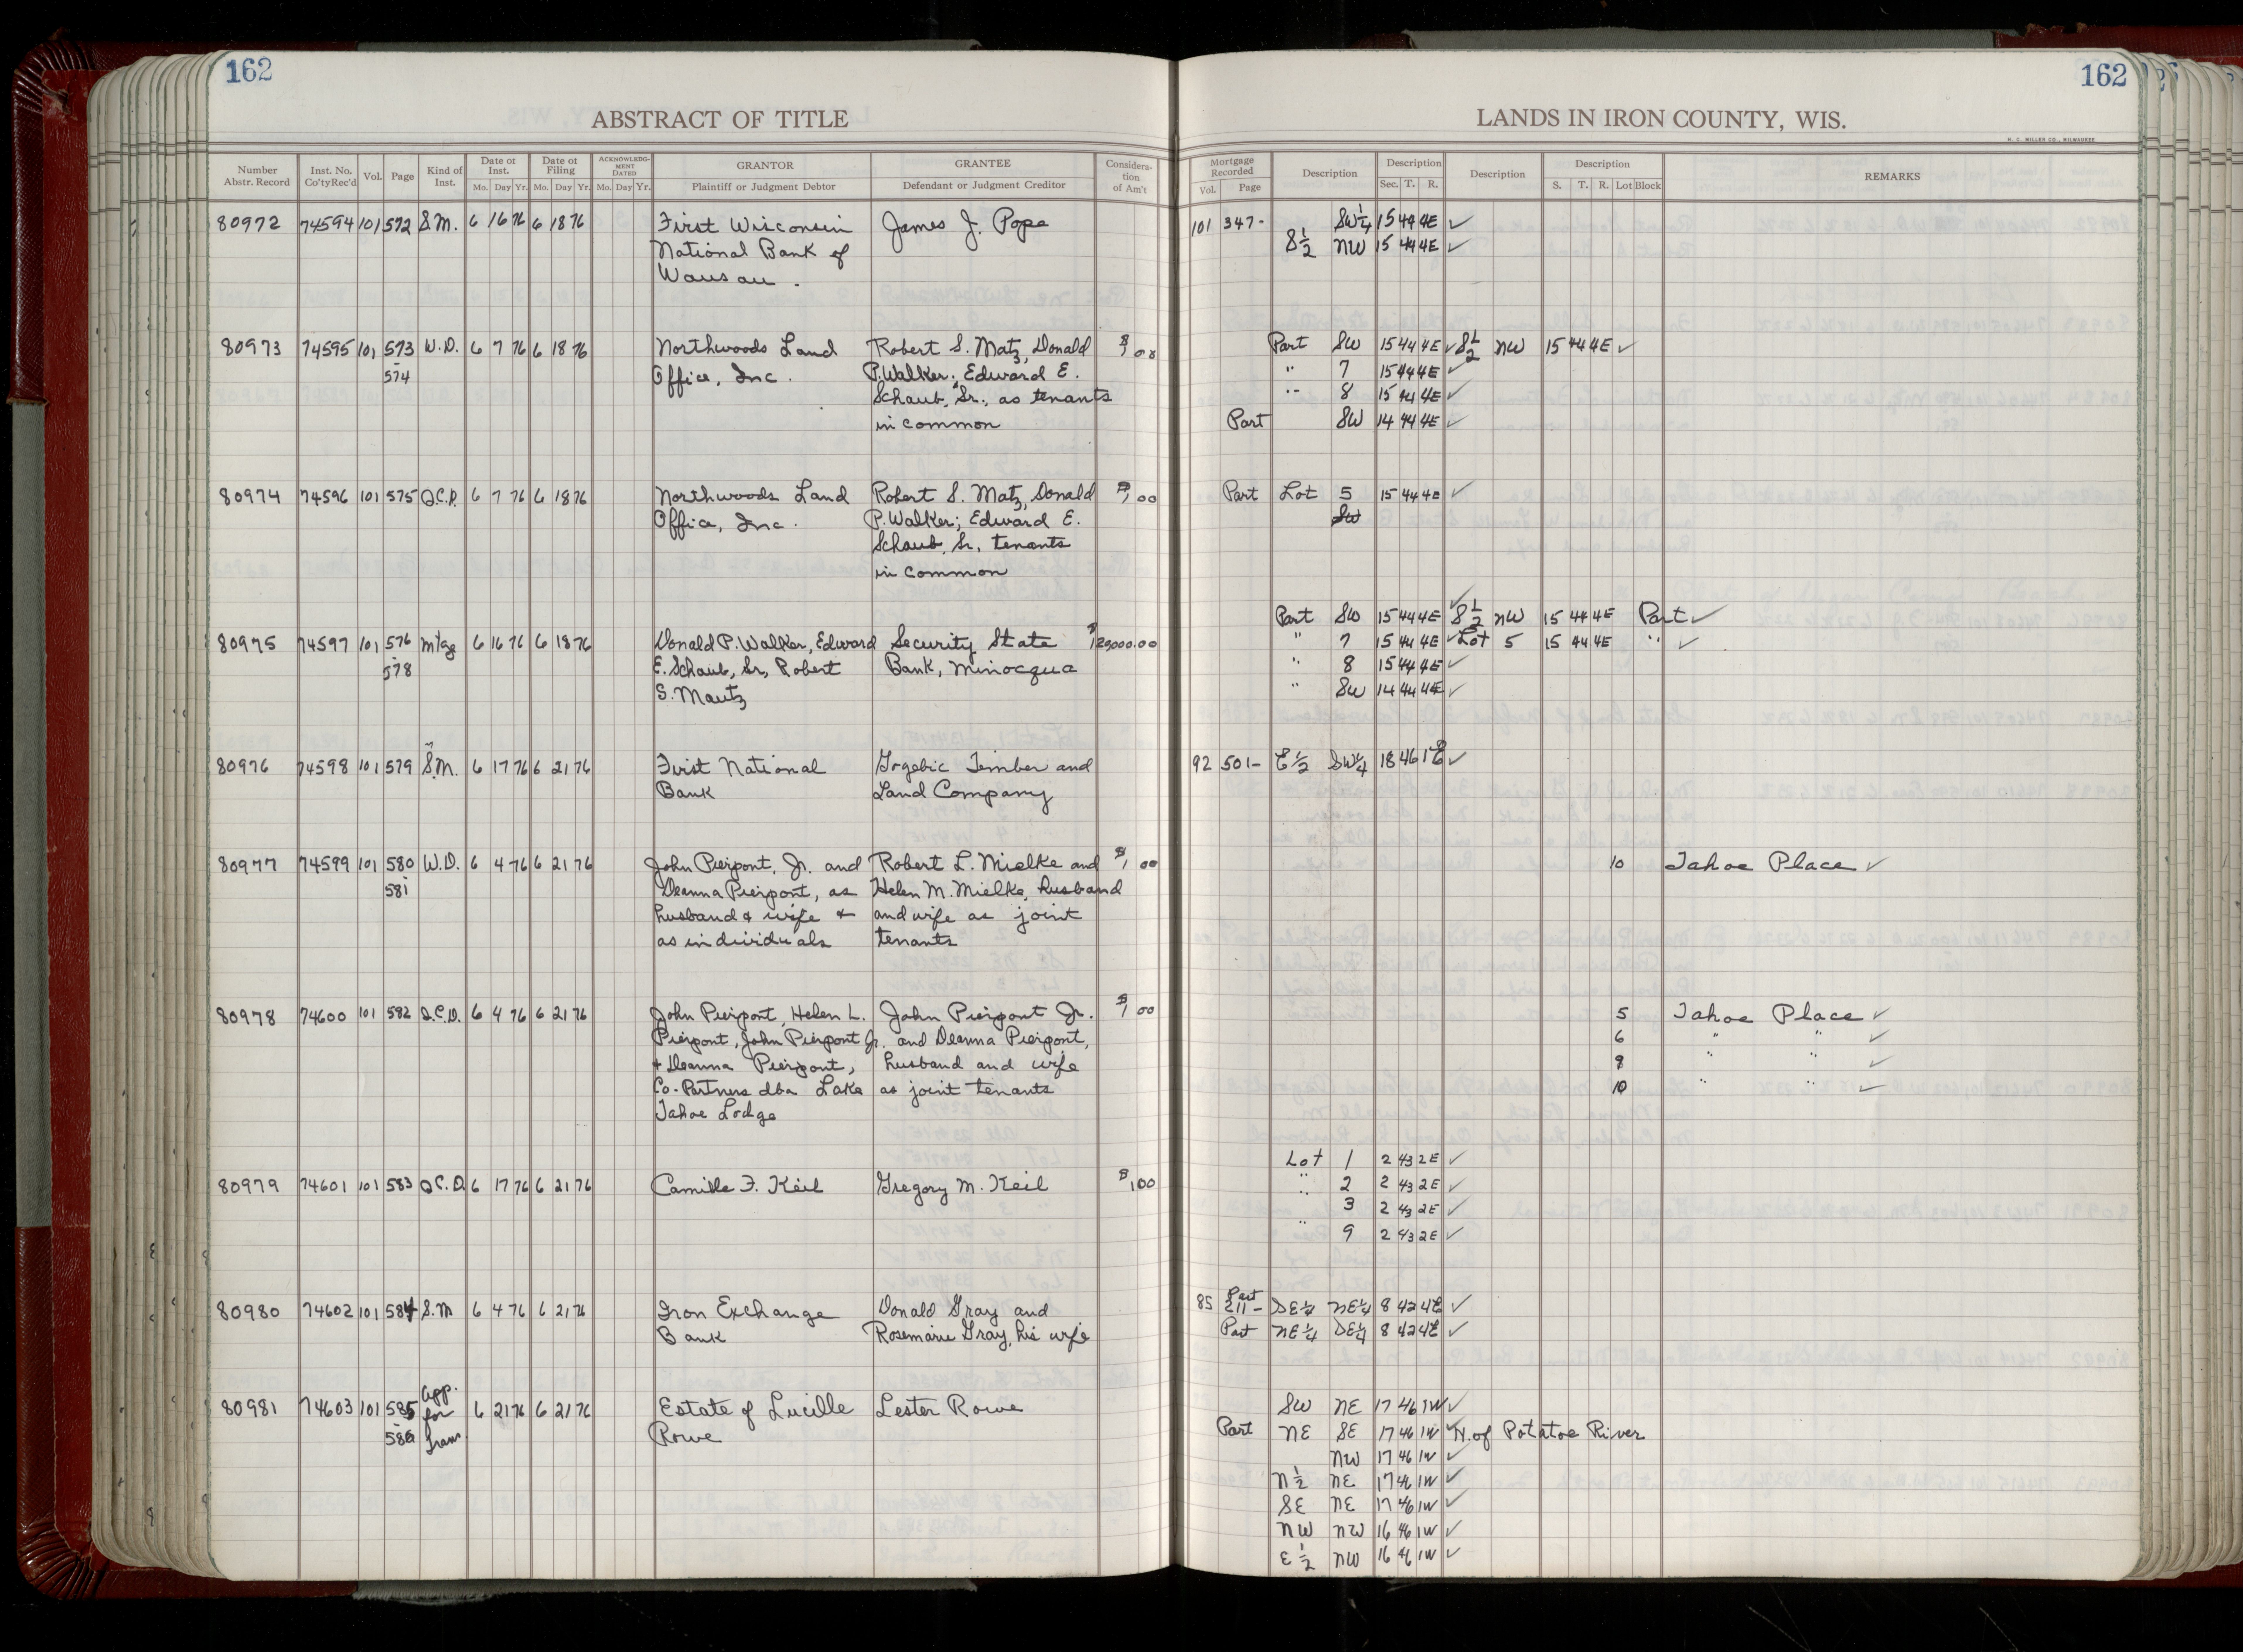 162
ABSTRACT OF TITLE
Number Abstr. Record | Inst. No. Co'ty Rec'd | Vol. | Page | Kind of Inst. | Date of Inst. Mo. Day Yr. | Date of Filing Mo. Day Yr. | ACKNOWLEDGMENT DATED Mo. Day Yr. | GRANTOR Plaintiff or Judgment Debtor | GRANTEE Defendant or Judgment Creditor | Consideration of Am't
162
LANDS IN IRON COUNTY, WIS.
H. C. MILLER CO., MILWAUKEE
Mortgage Recorded Vol. Page | Description | Description Sec. T. R. | Description | Description S. T. R. Lot Block | REMARKS
80972 74594 101 572 S.M. 6 16 76 6 18 76 First Wisconsin James J. Pope 101 347- SW¼ 15 44 4E ✓
National Bank of S½ NW 15 44 4E ✓
Wausau.
80973 74595 101 573 W.D. 6 7 76 6 18 76 Northwoods Land Robert S. Matz, Donald Part SW 15 44 4E ✓ S½ NW 15 44 4E ✓
- 574 Office, Inc. P. Walker; Edward E. " 7 15 44 4E ✓
Schaub, Sr., as tenants " 8 15 44 4E ✓
in common Part SW 14 44 4E ✓
80974 74596 101 575 Q.C.D. 6 7 76 6 18 76 Northwoods Land Robert S. Matz, Donald $1,00 Part Lot 5 15 44 4E ✓
Office, Inc. P. Walker; Edward E. SW
Schaub, Sr., tenants
in common
Part SW 15 44 4E ✓ S½ NW 15 44 4E Part ✓
80975 74597 101 576 Mtge 6 16 76 6 18 76 Donald P. Walker, Edward Security State $120,000.00 " 7 15 44 4E ✓ Lot 5 15 44 4E " ✓
- 578 E. Schaub, Sr., Robert Bank, Minocqua " 8 15 44 4E ✓
S. Mautz " SW 14 44 4E ✓
80976 74598 101 579 S.M. 6 17 76 6 21 76 First National Gogebic Timber and 92 501- E½ SW¼ 18 46 1E ✓
Bank Land Company
80977 74599 101 580 W.D. 6 4 76 6 21 76 John Pierpont, Jr. and Robert L. Mielke and $1,00 10 Tahoe Place ✓
- 581 Deanna Pierpont, as Helen M. Mielke, husband
husband & wife & and wife as joint
as individuals tenants
80978 74600 101 582 Q.C.D. 6 4 76 6 21 76 John Pierpont, Helen L. John Pierpont Jr. $1,00 5 Tahoe Place ✓
Pierpont, John Pierpont Jr. and Deanna Pierpont, 6 " " ✓
& Deanna Pierpont, husband and wife " " ✓
Co-Partners dba Lake as joint tenants 10 " " ✓
Tahoe Lodge
Lot 1 2 43 2E ✓
80979 74601 101 583 Q.C.D. 6 17 76 6 21 76 Camille F. Keil Gregory M. Keil $1,00 " 2 2 43 2E ✓
" 3 2 43 2E ✓
" 9 2 43 2E ✓
80980 74602 101 584 S.M 6 4 76 6 21 76 Iron Exchange Donald Gray and 85 211- Part SE¼ NE¼ 8 42 4E ✓
Bank Rosemarie Gray, his wife Part NE¼ SE¼ 8 42 4E ✓
80981 74603 101 585 App. for Tran 6 21 76 6 21 76 Estate of Lucille Lester Rowe SW NE 17 46 1W ✓
- 586 Rowe Part NE SE 17 46 1W ✓ N. of Potatoe River
NW 17 46 1W ✓
N½ NE 17 46 1W ✓
SE NE 17 46 1W ✓
NW NW 16 46 1W ✓
E½ NW 16 46 1W ✓